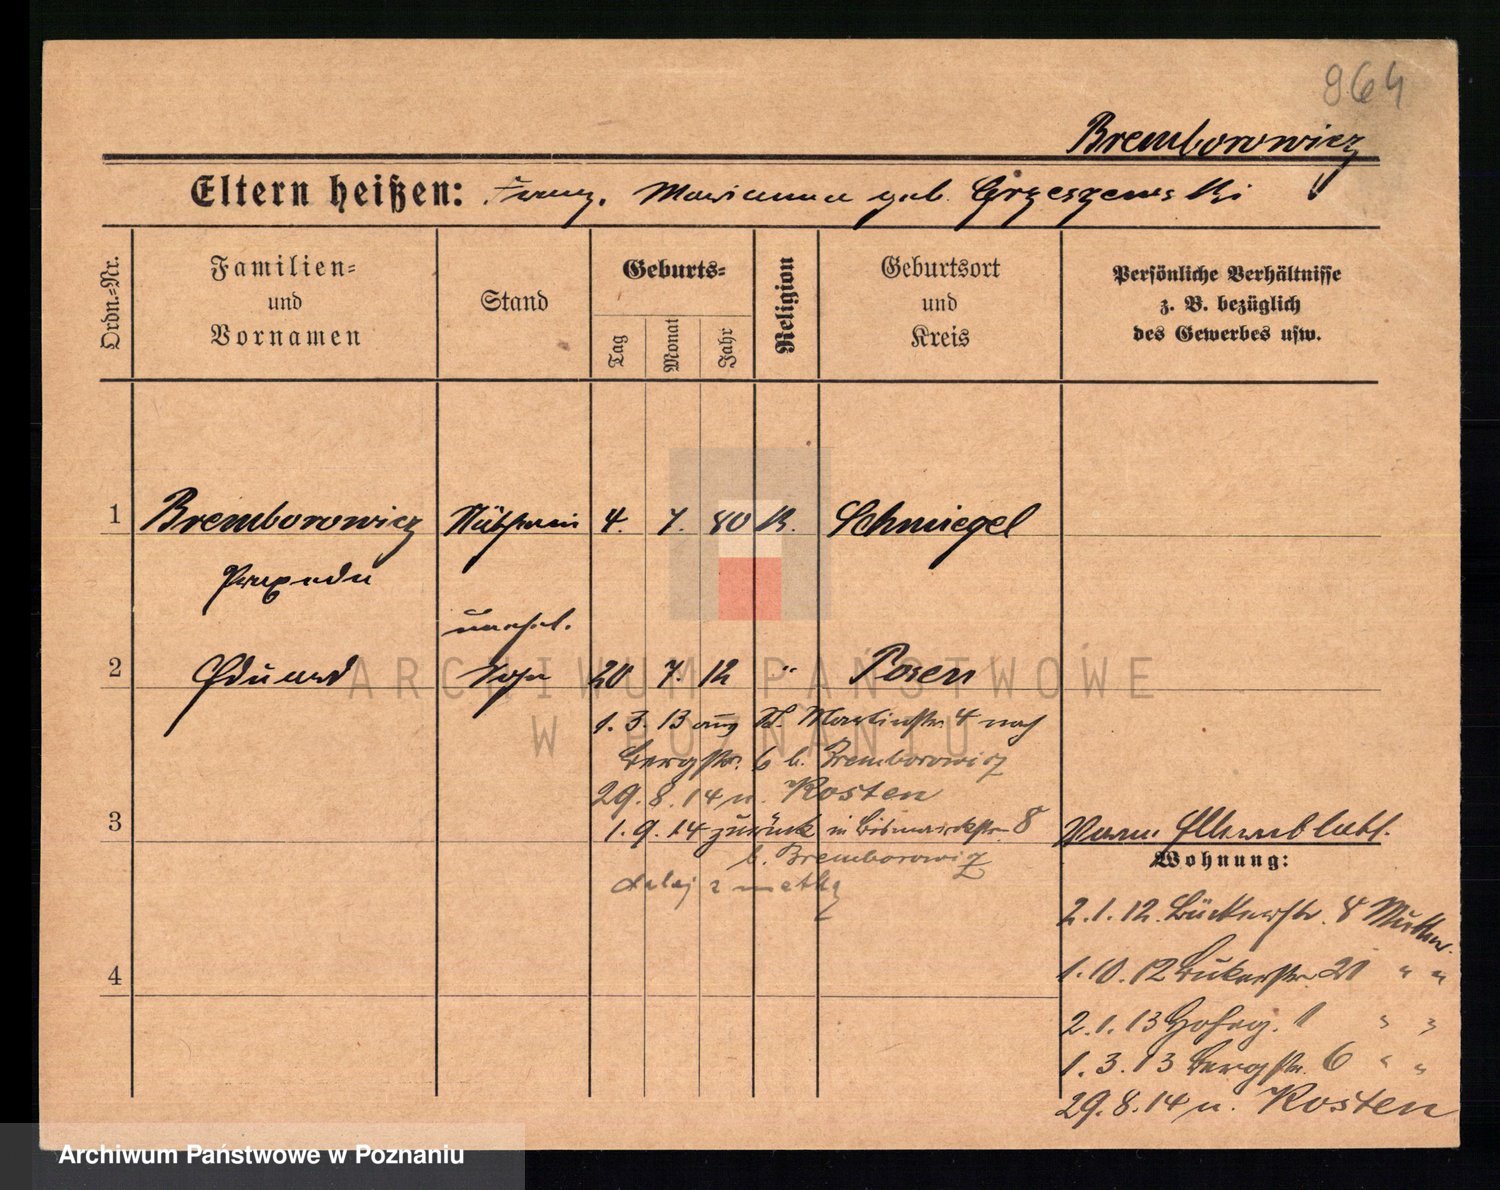 964
Bremborowicz
Eltern heißen: Franz. Marianna geb. Grzeszewski
Ordn.-Nr.
Familien-
und
Vornamen
Stand
Geburts-
Tag
Monat
Jahr
Religion
Geburtsort
und
Kreis
Persönliche Verhältnisse
z. B. bezüglich
des Gewerbes usw.
1 Bremborowicz 4. 7. 80 K. Schmiegel
Praxeda
unehel.
2 Eduard Sohn 20 7. 12 " Posen
1. 3. 13 aus St. Martinstr. 4 nach
Bergstr. 6 b. Bremborowicz
29. 8. 14 n. Kosten
3
1. 9. 14 zurück in Bismarckstr. 8
b. Bremborowicz
dalej z matką
Wohnung:
2. 1. 12. 8 Mutter
4
1. 10. 12 21 " "
2. 1. 13 1 " "
1. 3. 13 Bergstr. 6 " "
29. 8. 14 n. Kosten
ARCHIWUM PAŃSTWOWE
W POZNANIU
Archiwum Państwowe w Poznaniu